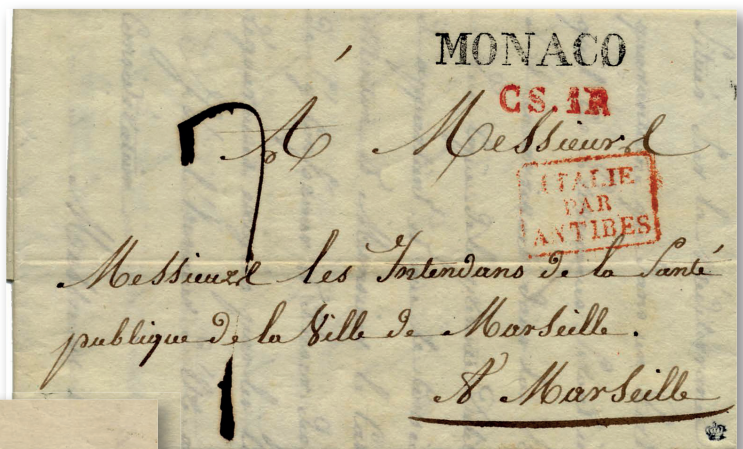 MONACO
CS.1R
À Messieurs
ITALIE
PAR
ANTIBES
7
Messieurs les Intendans de la Santé
publique de la Ville de Marseille.
À Marseille